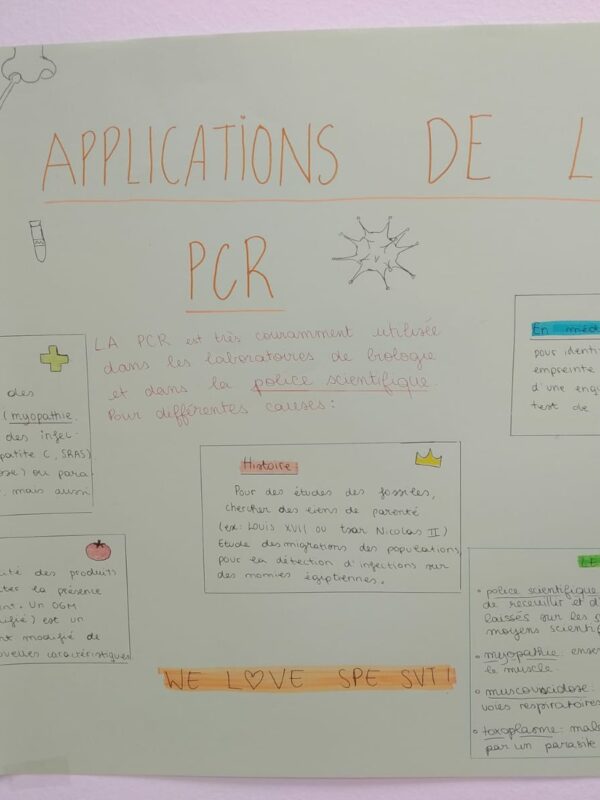 APPLICATIONS DE L
PCR
LA PCR est très couramment utilisée
dans les laboratoires de biologie
et dans la police scientifique.
Pour différentes causes :
des
(myopathie,
des infec-
patite C, SRAS)
ose) ou para-
, mais aussi
En méd
pour identi
empreinte
d'une enqu
test de
Histoire :
Pour des études des fossiles,
chercher des liens de parenté
(ex: Louis XVII ou tsar Nicolas II)
Etude des migrations des populations,
pour la détection d'infections sur
des momies égyptiennes.
lité des produits
ter la présence
nt. Un OGM
ifié) est un
nt modifié de
uvelles caractéristiques
LE
• police scientifique
de receuillir et d
laissés sur les
moyens scientif
• myopathie : ense
le muscle.
• muscoviscidose :
voies respiratoires
• toxoplasme : mala
par un parasite
WE L♡VE SPE SVT!